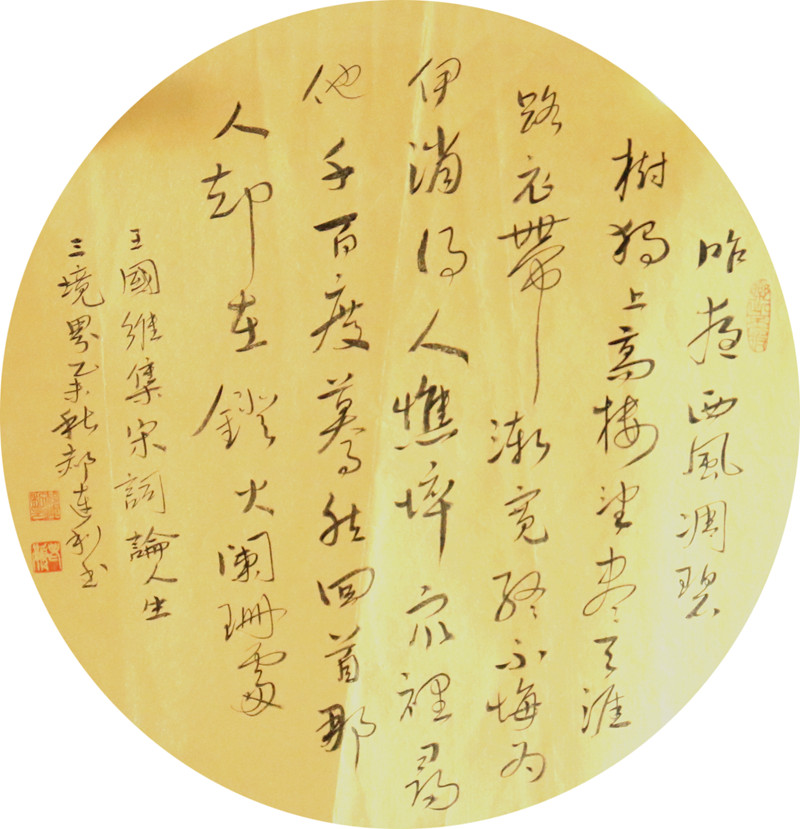 昨夜西風凋碧
樹獨上高樓望盡天涯
路衣帶漸寬終不悔為
伊消得人憔悴眾裡尋
他千百度驀然回首那
人却在鐙火闌珊處
王國維集宋詞論人生
三境界乙未秋郝連利书